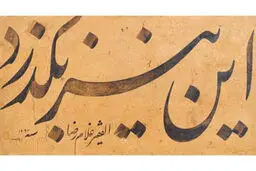 این نیز بگذرد
الفقیر غلامرضا